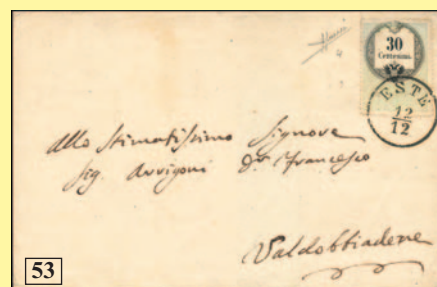 30
Centesimi
ESTE
12
12
Allo Stimatissimo Signore
Sig. Arrigoni Dr. Francesco
Valdobbiadene
53